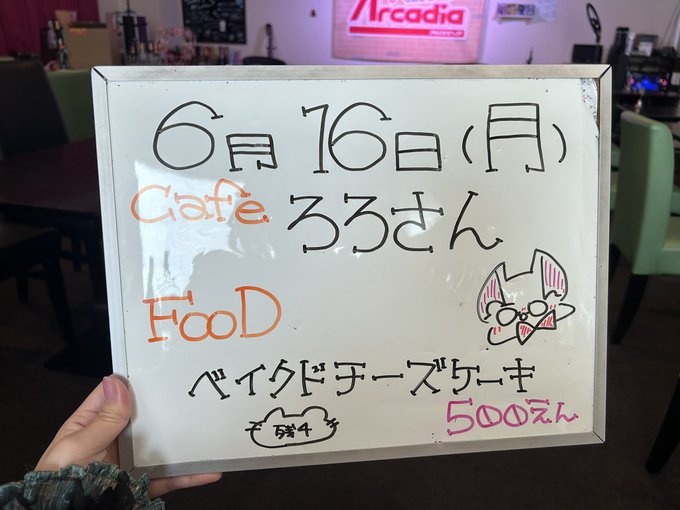 Arcadia
6月16日(月)
Cafe ろろさん
FooD
ベイクドチーズケーキ
残4
500えん